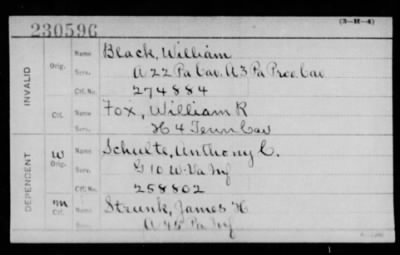 230596
(3-H-4)
INVALID
Orig.
Name Black, William
Serv. A 22 Pa Cav. A 3 Pa Prov. Cav
Ctf. No. 274884
Ctf. Name Fox, William R
Serv. H 4 Tenn Cav
DEPENDENT
W Orig.
Name Schultz, Anthony C.
Serv. G 10 W. Va Inf
Ctf. No. 258802
M Ctf.
Name Strunk, James H
A 45 Pa Inf